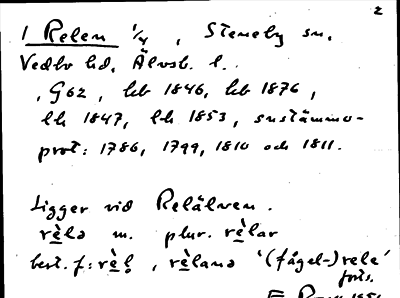 2
1 Relen 1/4, Steneby sn,
Vedbo hd, Älvsb. l.
, G62, hb 1846, hb 1876,
lh 1847, lh 1853, sustämmo-
prot: 1786, 1799, 1810 och 1811.
Ligger vid Relälven.
rèlə m. plur. rèlar
best. f: rèḷ, rèlanə '(fågel-)rele'
forts.